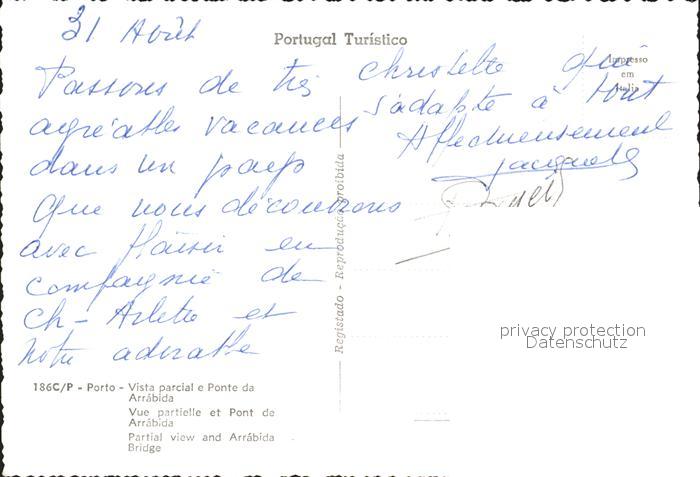 31 Août
Portugal Turístico
Impresso
em
Italia
Passons de très
agréables vacances
dans un pays
que nous découvrons
avec plaisir en
compagnie de
Ch-Arlette et
notre adorable
Christelle qui
s'adapte à tout
Affectueusement
Registado - Reprodução proibida
privacy protection
Datenschutz
186C/P - Porto - Vista parcial e Ponte da
Arrábida
Vue partielle et Pont de
Arrábida
Partial view and Arrábida
Bridge